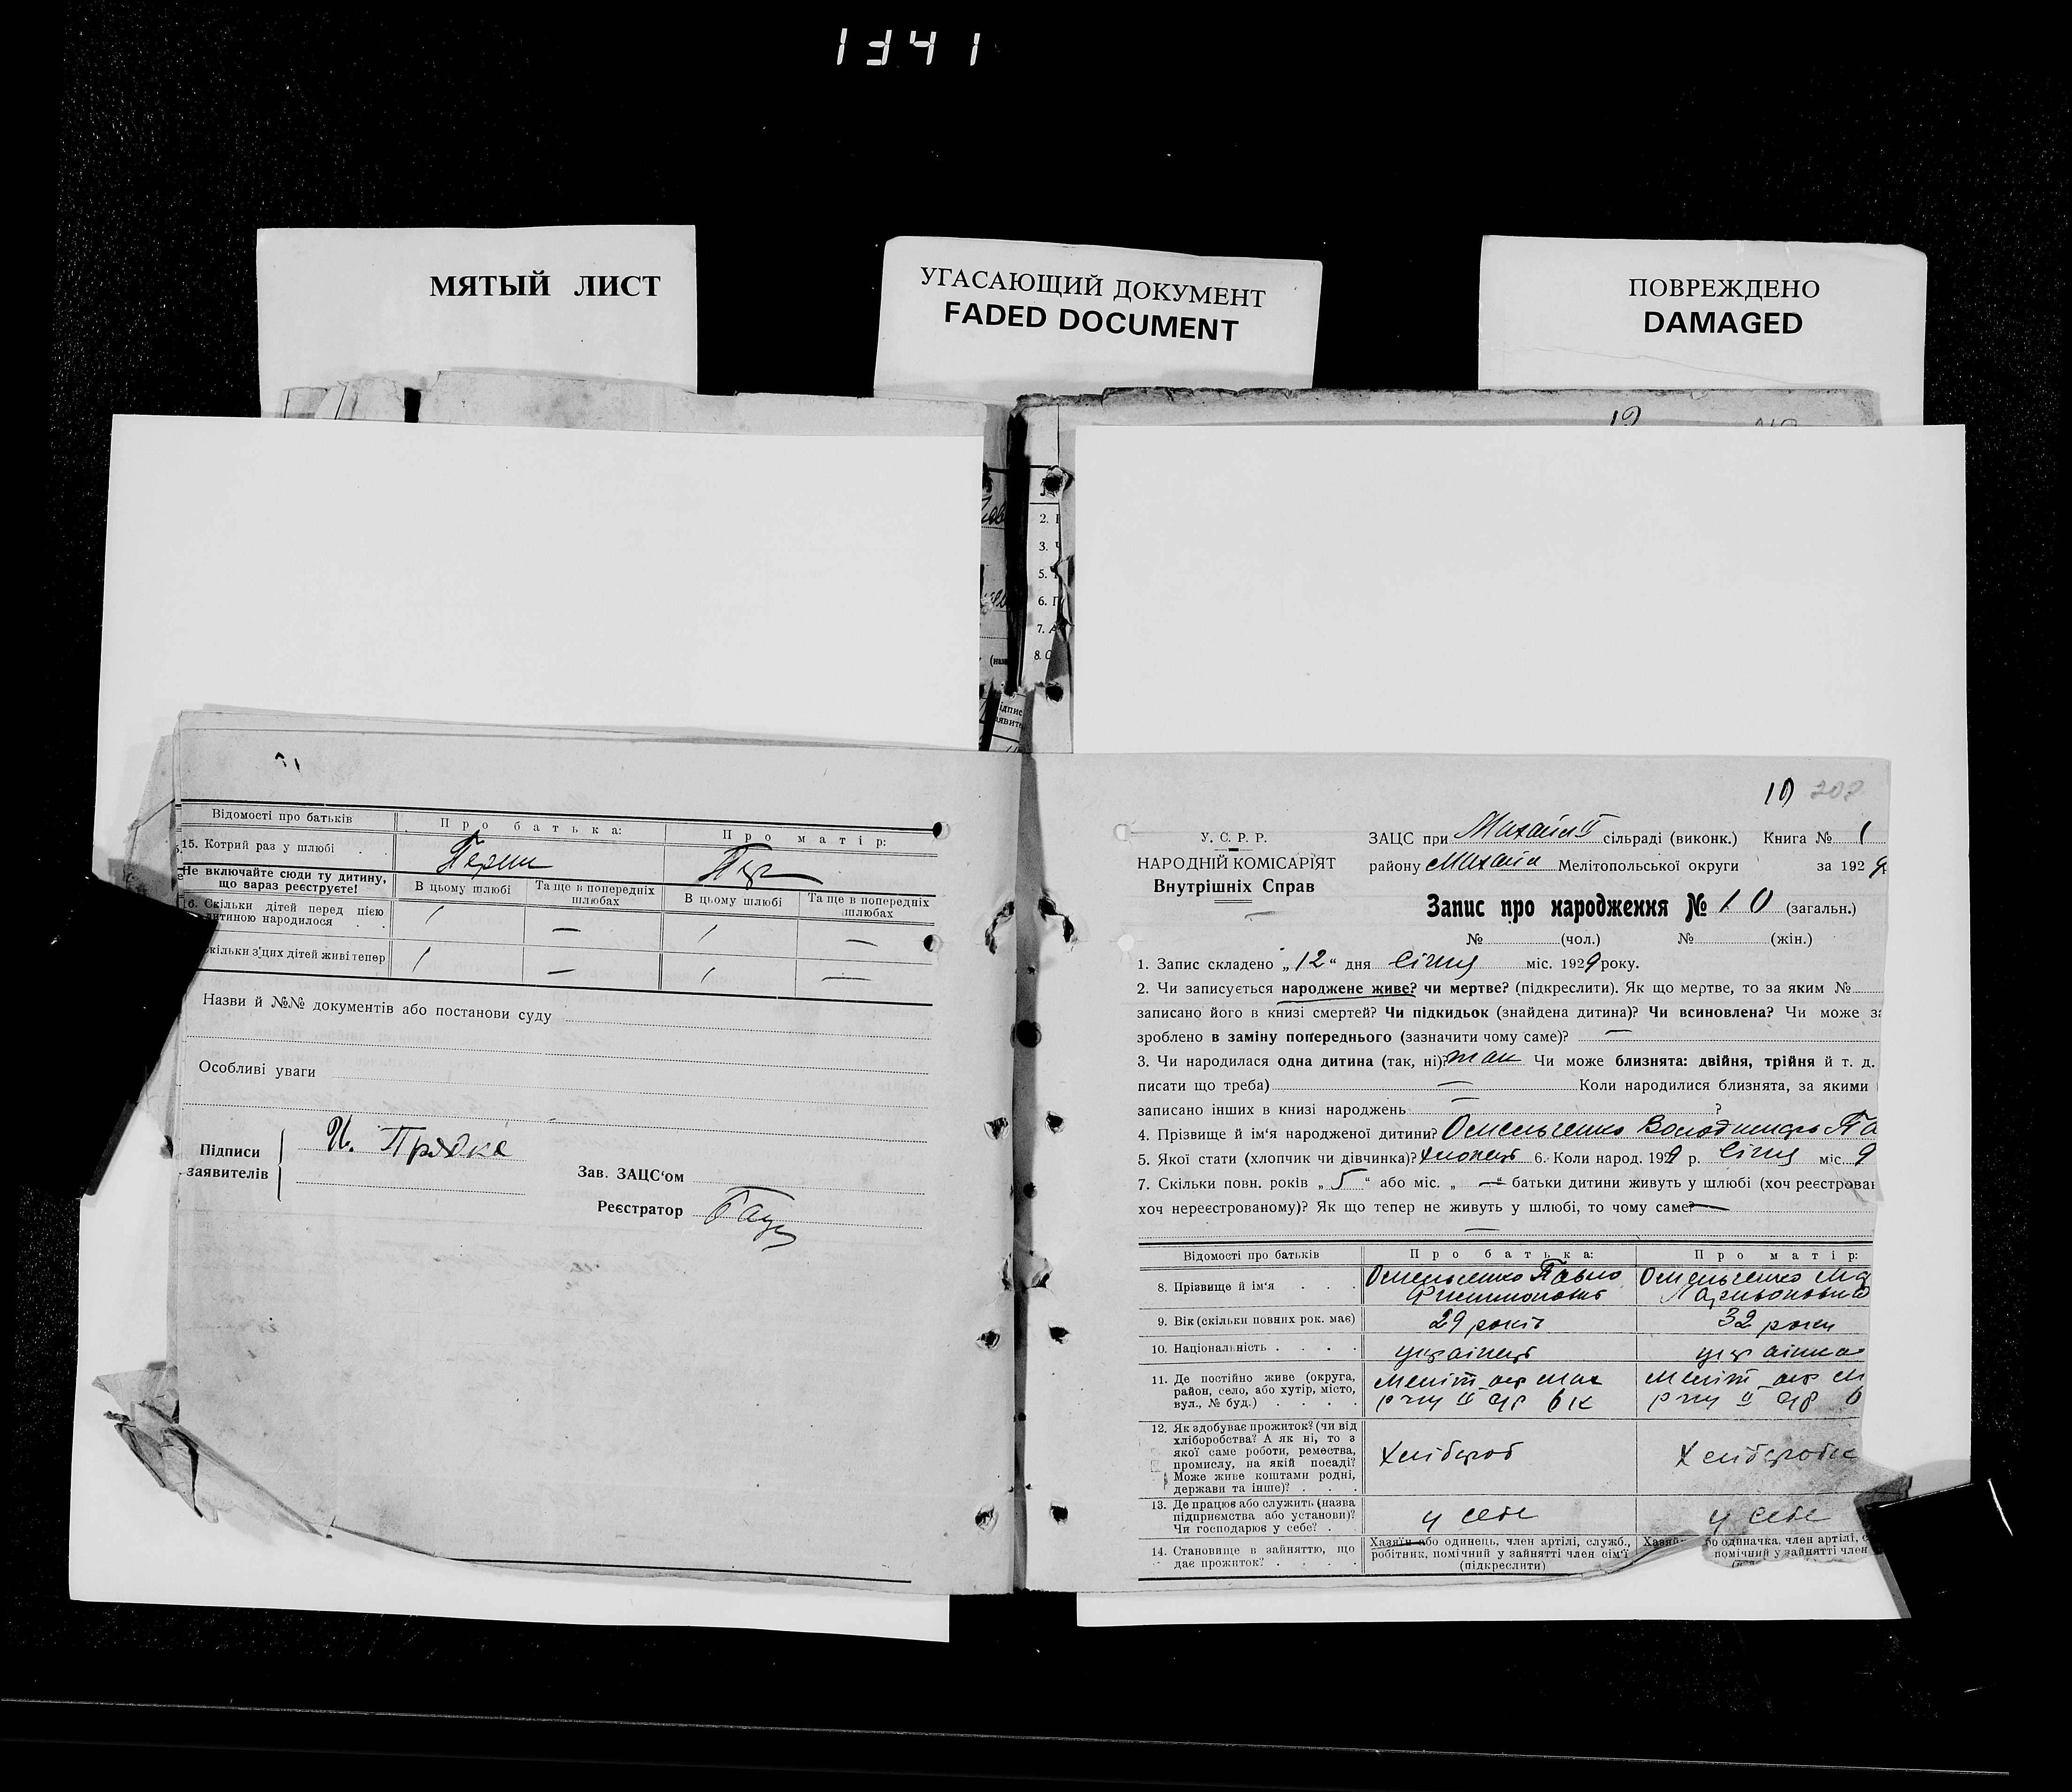 1341
МЯТЫЙ ЛИСТ
УГАСАЮЩИЙ ДОКУМЕНТ
FADED DOCUMENT
ПОВРЕЖДЕНО
DAMAGED
12
2.
3. Ч
5.
6. Г
7. А
8. С
Відомості про батьків
Про батька:
Про матір:
15. Котрий раз у шлюбі . .
Перш
Пер
Не включайте сюди ту дитину,
що вараз реєструєте!
В цьому шлюбі
Та ще в попередніх
шлюбах
В цьому шлюбі
Та ще в попередніх
шлюбах
16. Скільки дітей перед цією
дитиною народилося . .
1 — 1 —
кільки з'цих дітей живі тепер
1 — 1 —
Назви й №№ документів або постанови суду
Особливі уваги
Підписи
заявителів
И. Прядка
Зав. ЗАЦС'ом
Реєстратор
10 202
У. С. Р. Р.
НАРОДНІЙ КОМІСАРІЯТ
Внутрішніх Справ
ЗАЦС при Михайл II сільраді (виконк.) Книга № 1
району Михайл Мелітопольської округи за 1929
Запис про народження № 10 (загальн.)
№ (чол.) № (жін.)
1. Запис складено „12“ дня Січня міс. 1929 року.
2. Чи записується народжене живе? чи мертве? (підкреслити). Як що мертве, то за яким №
записано його в книзі смертей? Чи підкидьок (знайдена дитина)? Чи всиновлена? Чи може з
зроблено в заміну попереднього (зазначити чому саме)? —
3. Чи народилася одна дитина (так, ні)? так Чи може близнята: двійня, трійня й т. д.
писати що треба) — Коли народилися близнята, за якими
записано інших в книзі народжень — ?
4. Прізвище й ім'я народженої дитини? Омельченко Володимир Па
5. Якої стати (хлопчик чи дівчинка)? хлопець 6. Коли народ. 1929 р. Січня міс. 9
7. Скільки повн. років „ 5 “ або міс. „ — “ батьки дитини живуть у шлюбі (хоч реєстрован
хоч нереєстрованому)? Як що тепер не живуть у шлюбі, то чому саме? —
—
Відомості про батьків
Про батька:
Про матір:
8. Прізвище й ім'я . . .
Омельченко Павло
Омельченко Ма
Ларивоновна
9. Вік (скільки повних рок. має)
29 років
32 роки
10. Національність . . . .
українець
українка
11. Де постійно живе (округа,
район, село, або хутір, місто,
вул., № буд.) . . . .
Меліт окр Мих
Меліт окр М
12. Як здобуває прожиток? (чи від
хліборобства? А як ні, то з
якої саме роботи, ремества,
промислу, на якій посаді?
Може живе коштами родні,
держави та інше)? . . .
Хлібороб
Хлібороб
13. Де працює або служить (назва
підприємства або установи)?
Чи господарює у себе? .
у себе
у себе
14. Становище в зайняттю, що
дає прожиток? . . . .
Хазяїн або одинець, член артілі, служб.,
робітник, помічний у зайнятті член сім'ї
(підкреслити)
Хазяй бо одиначка, член артілі, с
помічний у зайнятті член